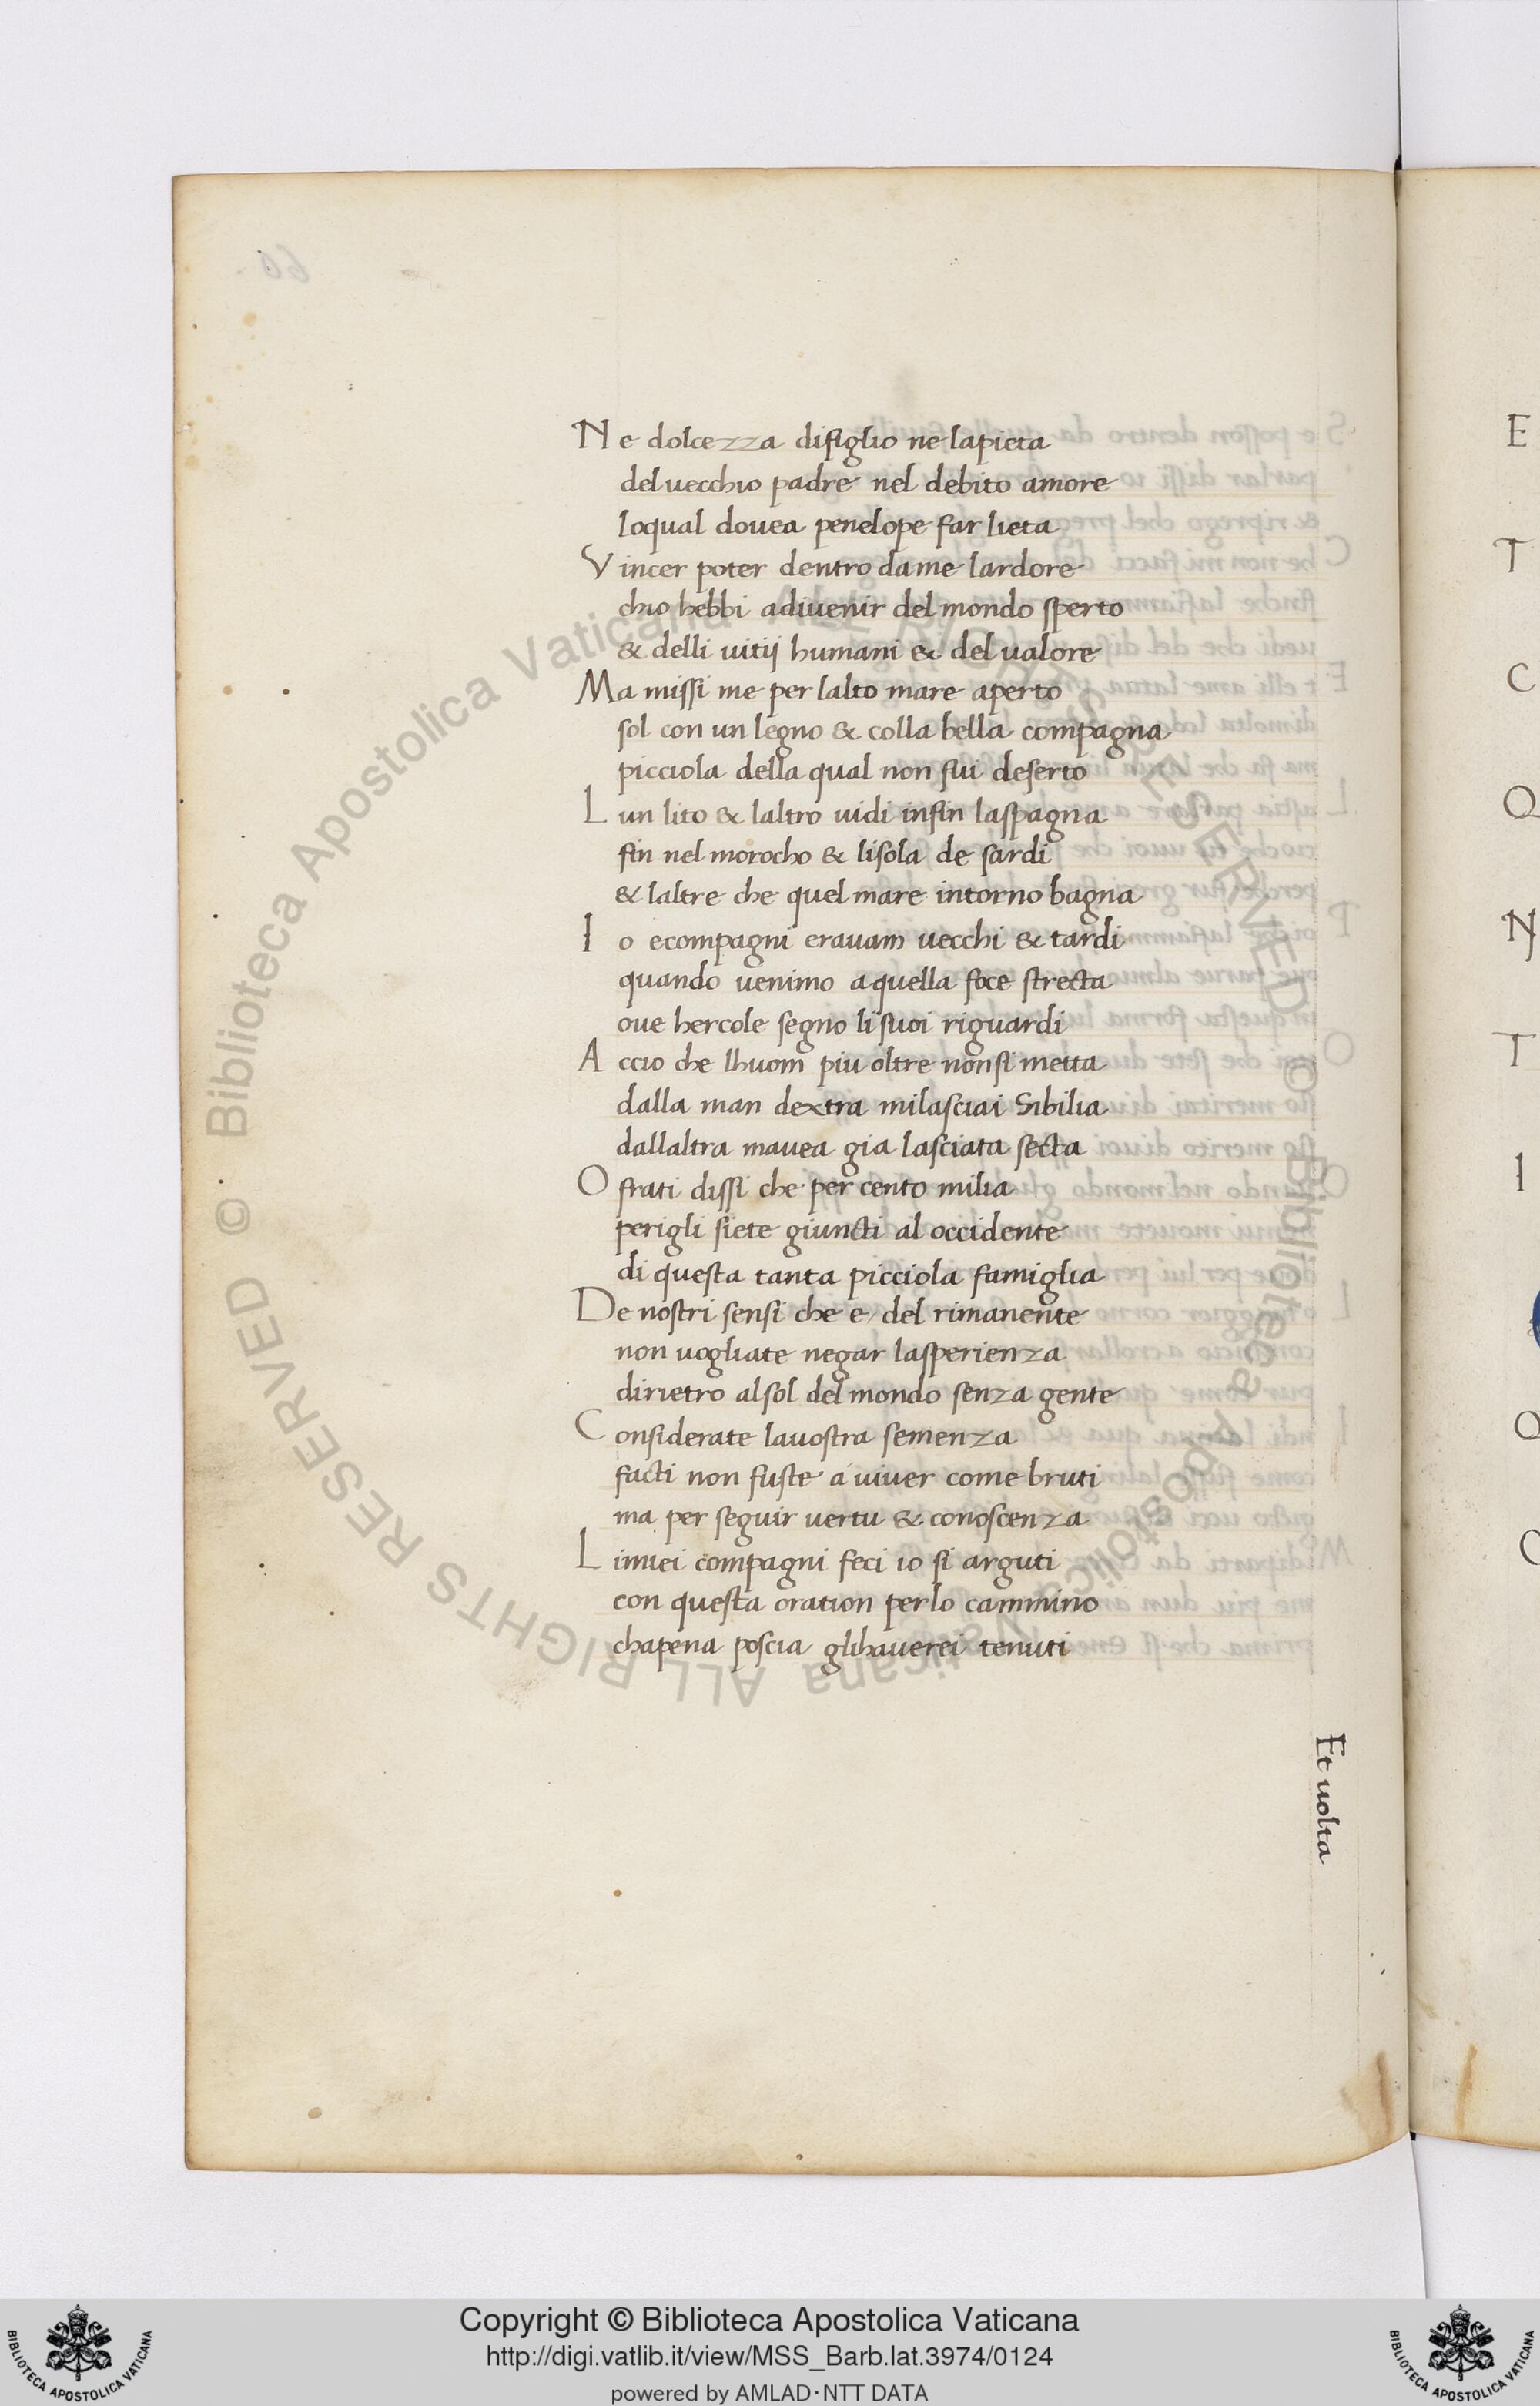 Ne dolcezza difiglio ne lapieta
deluecchio padre nel debito amore
loqual douea penelope far lieta
Vincer poter dentro dame lardore
chio hebbi adiuenir del mondo sperto
& delli uitij humani & del ualore
Ma missi me per lalto mare aperto
sol con un legno & colla bella compagna
picciola della qual non fui deserto
Lun lito & laltro uidi infin laspagna
fin nel morocho & lisola de sardi
& laltre che quel mare intorno bagna
Io ecompagni erauam uecchi & tardi
quando uenimo aquella foce strecta
oue hercole segno lisuoi riguardi
Accio che lhuom piu oltre nonsi metta
dalla man dextra milasciai Sibilia
dallaltra mauea gia lasciata secta
O frati dissi che per cento milia
perigli siete giuncti al occidente
di questa tanta picciola famiglia
De nostri sensi che e del rimanente
non uogliate negar lasperienza
dirietro alsol del mondo senza gente
Considerate lauostra semenza
facti non fuste a uiuer come bruti
ma per seguir uertu & conoscenza
Limiei compagni feci io si arguti
con questa oration perlo cammino
chapena poscia glihauerei tenuti
Et uolta
E
T
C
Q
N
T
I
Q
C
© Biblioteca Apostolica Vaticana ALL RIGHTS RESERVED
© Biblioteca Apostolica Vaticana ALL RIGHTS RESERVED
Copyright © Biblioteca Apostolica Vaticana
http://digi.vatlib.it/view/MSS_Barb.lat.3974/0124
powered by AMLAD·NTT DATA
BIBLIOTECA APOSTOLICA VATICANA
BIBLIOTECA APOSTOLICA VATICANA